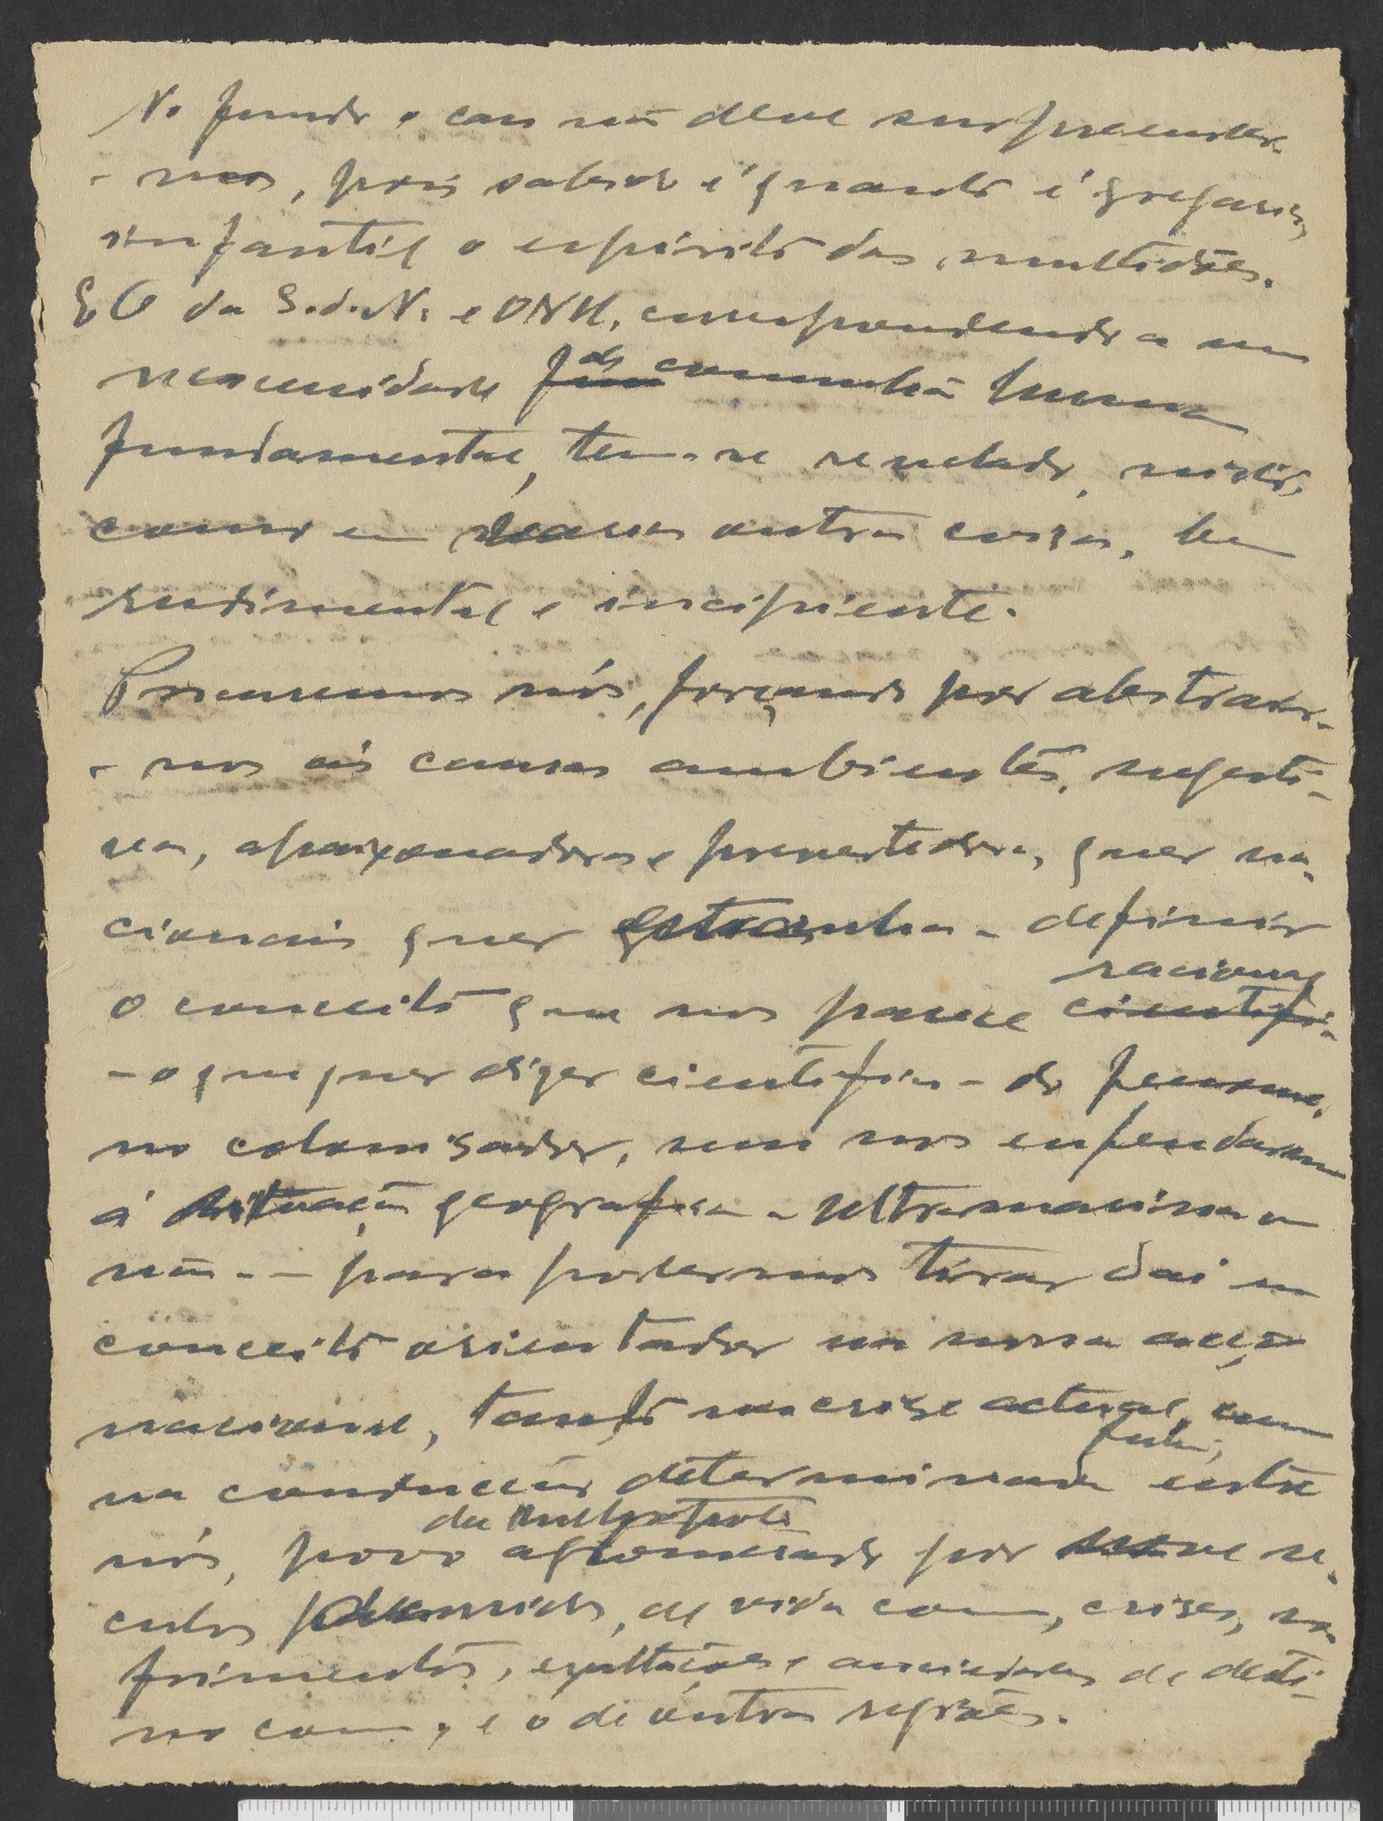 No fundo o caso não deve surpreender-
- nos, pois sabido é quanto é gregario,
infantil o espirito das multidões.
E O da S.d.N. e ONU, correspondendo a uma
necessidade de comunhão humana
fundamental, tem-se revelado, nisto,
como em outras coisas, bem
rudimentar e incipiente.
Procuremos nós, forçando por abstrair-
- nos ás causas ambientes, sugesti-
vas, apaixonadoras e pervertedoras, quer na-
cionais quer estranhas - definir
racional
o conceito que nos parece cientifi-
- o que quer dizer cientifico - do fenome-
no colonisador, sem nos enfeudarmos
á situação geografica - ultramarina ou
não - - para podermos tirar dai um
conceito orientador na nossa acção
nacional, tanto na crise actual, como
na conducção determinada entre
nós, povo aglomerado por nove se-
culos de vida comum, crises, so-
frimentos, exultações e anciedades de desti-
no comum, e o de outras regiões.